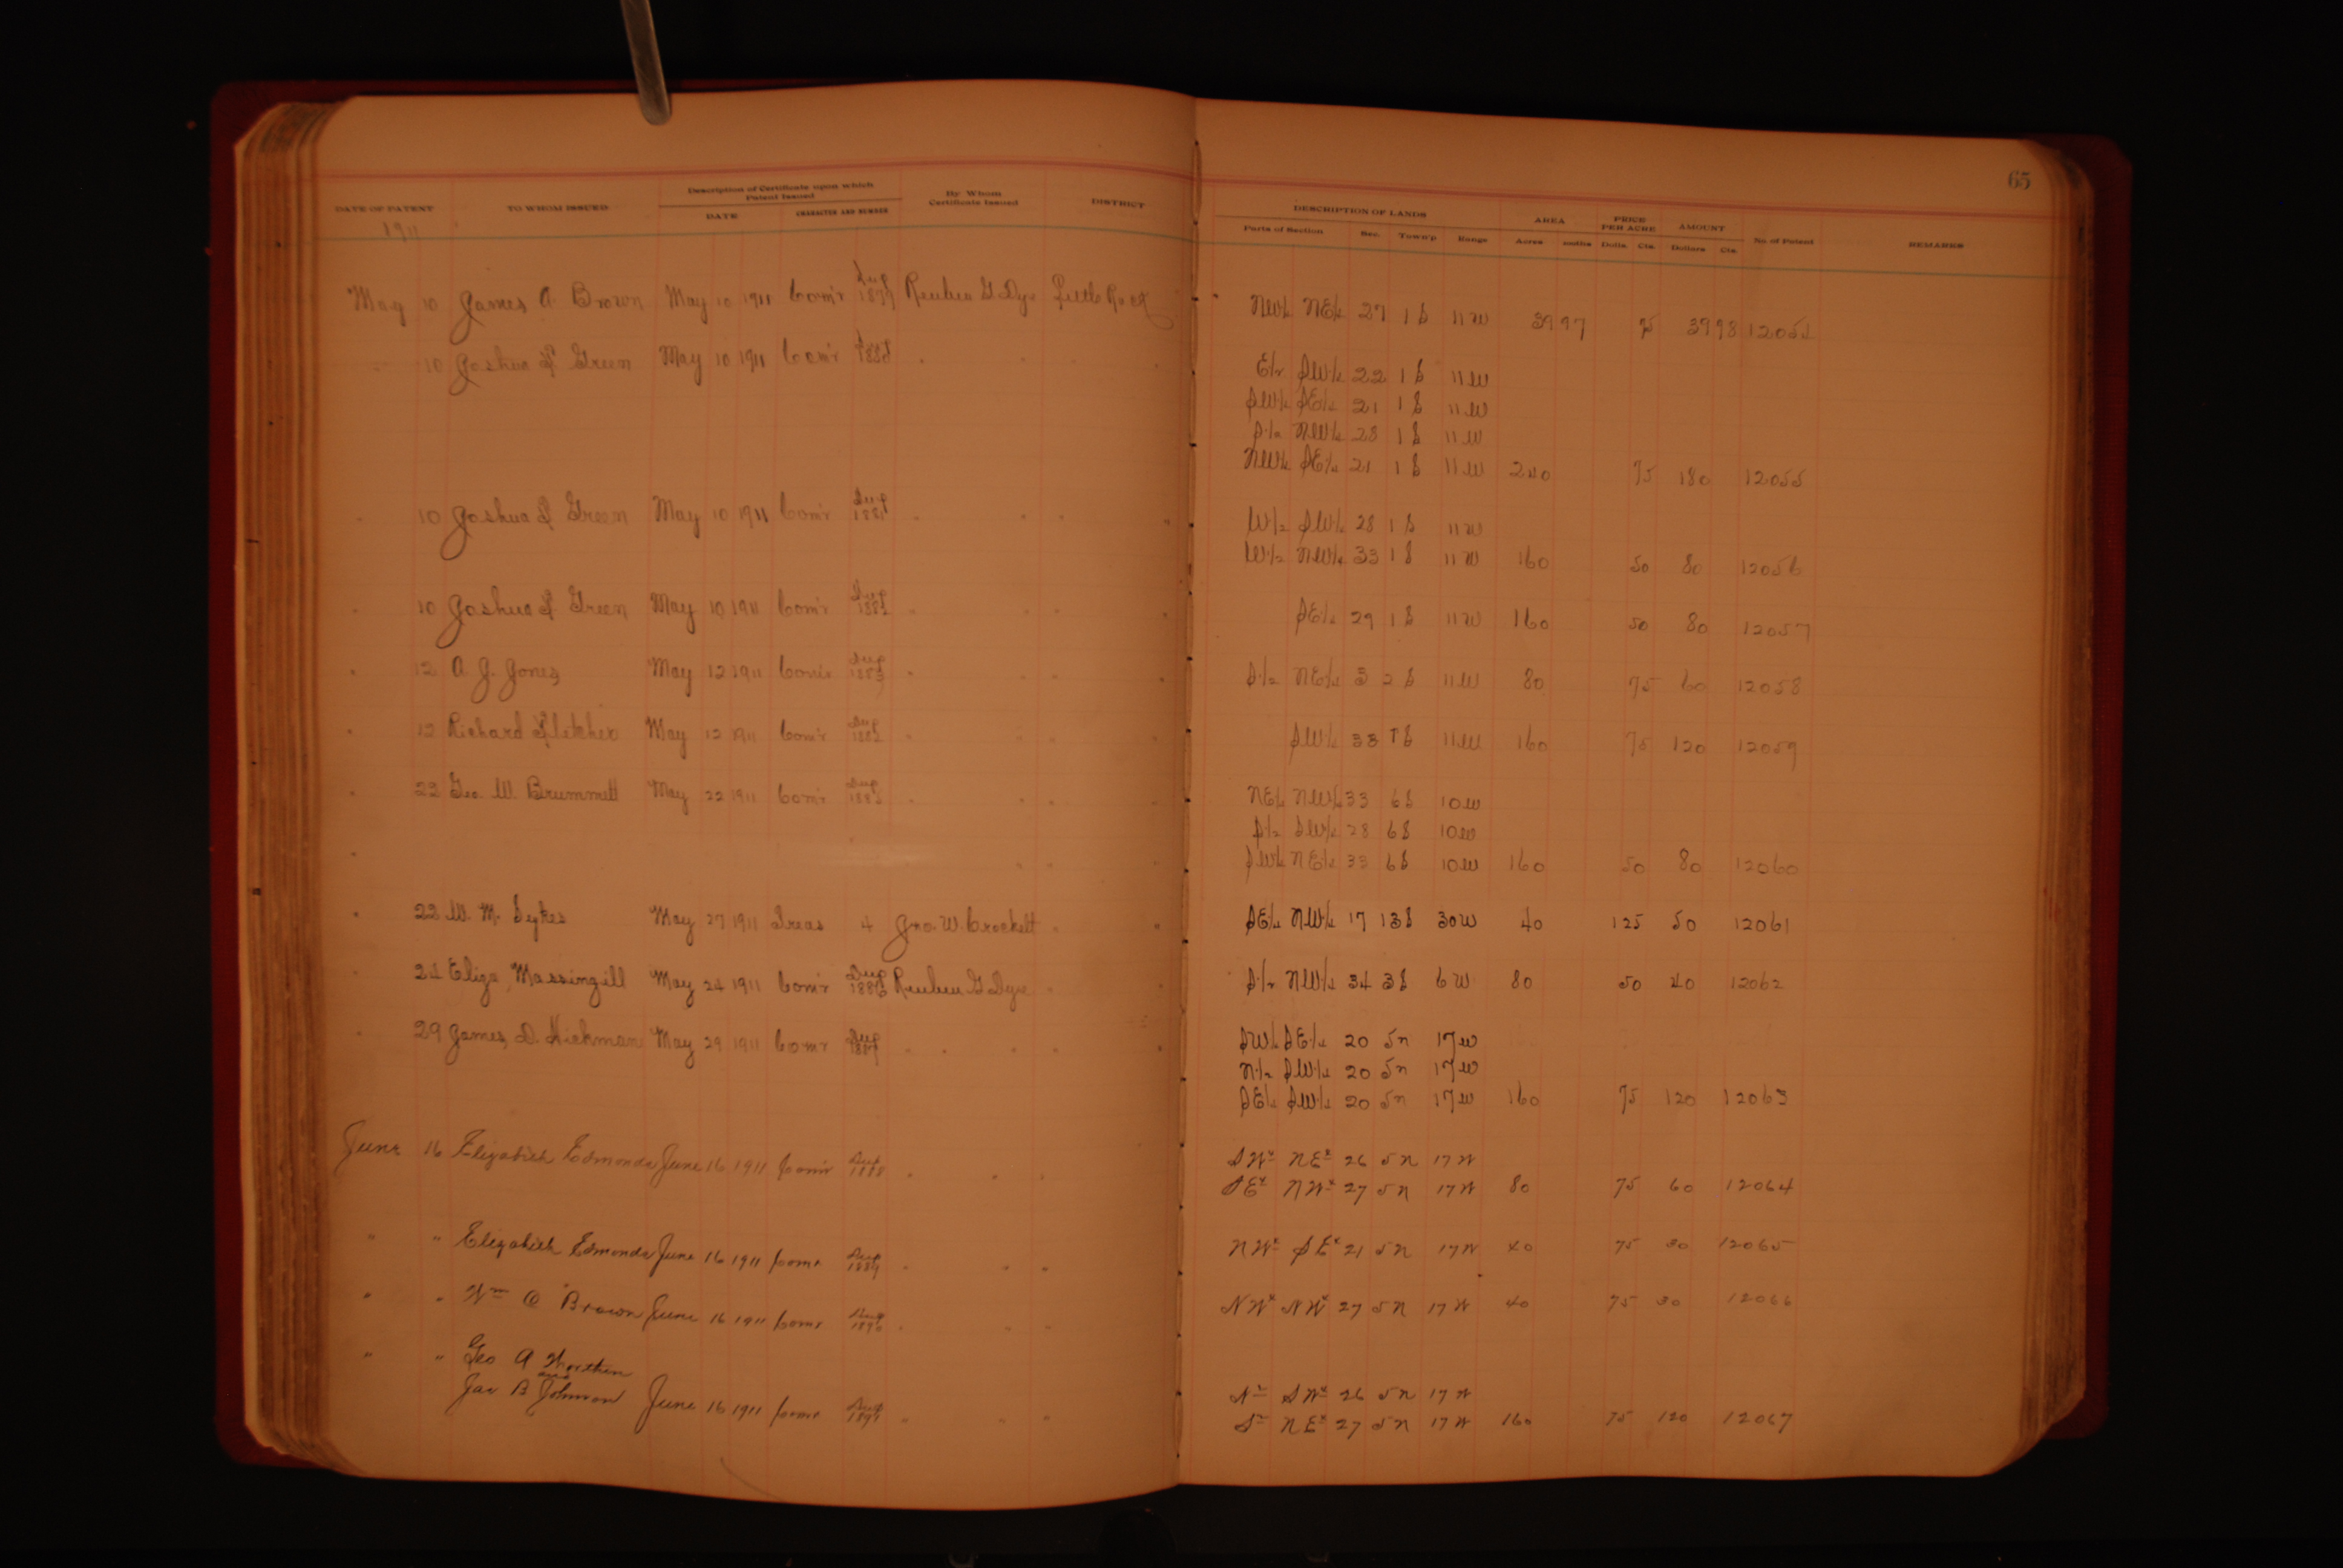 65
DATE OF PATENT TO WHOM ISSUED Description of Certificate upon which Patent Issued DATE CHARACTER AND NUMBER By Whom Certificate Issued DISTRICT DESCRIPTION OF LANDS Parts of Section Sec. Town'p Range AREA Acres PRICE PER ACRE Dolls. Cts. AMOUNT Dollars Cts. No. of Patent REMARKS
1911
May 10 James A. Brown May 10 1911 Com'r Dup 1879 Reuben G. Dye Little Rock NW¼ NE¼ 27 1 S 11 W 39 97 39 98 12054
" 10 Joshua F Green May 10 1911 Com'r Dup 1880 " " " E½ SW¼ 22 1 S 11 W
SW¼ SE¼ 21 1 S 11 W
S½ NW¼ 28 1 S 11 W
NW¼ SE¼ 21 1 S 11 W 240 75 180 12055
" 10 Joshua F Green May 10 1911 Com'r Dup 1881 " " " W½ SW¼ 28 1 S 11 W
W½ NW¼ 33 1 S 11 W 160 50 80 12056
" 10 Joshua F Green May 10 1911 Com'r Dup 1882 " " " SE¼ 29 1 S 11 W 160 50 80 12057
" 12 A. J. Jones May 12 1911 Com'r Dup 1883 " " " S½ NE¼ 3 2 S 11 W 80 75 60 12058
" 12 Richard Fletcher May 12 1911 Com'r Dup " " " SW¼ 33 1 S 11 W 160 75 120 12059
" 22 Geo. W. Brummett May 22 1911 Com'r Dup " " " NE¼ NW¼ 33 6 S 10 W
S½ SW¼ 28 6 S 10 W
" " " SW¼ NE¼ 33 6 S 10 W 160 50 80 12060
" 22 W. M. Sykes May 27 1911 Treas 4 Jno. W. Crockett " SE¼ NW¼ 17 13 S 30 W 40 1 25 50 12061
" 24 Eliza Massingill May 24 1911 Com'r Dup 1886 Reuben G. Dye " S½ NW¼ 34 3 S 6 W 80 50 40 12062
" 29 James D. Hickman May 29 1911 Com'r Dup 1887 " " " " SW¼ SE¼ 20 5 N 17 W
N½ SW¼ 20 5 N 17 W
SE¼ SW¼ 20 5 N 17 W 160 75 120 12063
June 16 Elizabeth Edmonds June 16 1911 Com'r Dup 1888 " " " SW¼ NE¼ 26 5 N 17 W
SE¼ NW¼ 27 5 N 17 W 80 75 60 12064
" " Elizabeth Edmonds June 16 1911 Comr Dup 1889 " " " NW¼ SE¼ 21 5 N 17 W 40 75 30 12065
" " Wm O Brown June 16 1911 Comr Dup 1890 " " " NW¼ NW¼ 27 5 N 17 W 40 75 30 12066
" " Geo A Worthen
and
Jas B Johnson June 16 1911 Comr Dup 1891 " " " N½ SW¼ 26 5 N 17 W
S½ NE¼ 27 5 N 17 W 160 75 120 12067